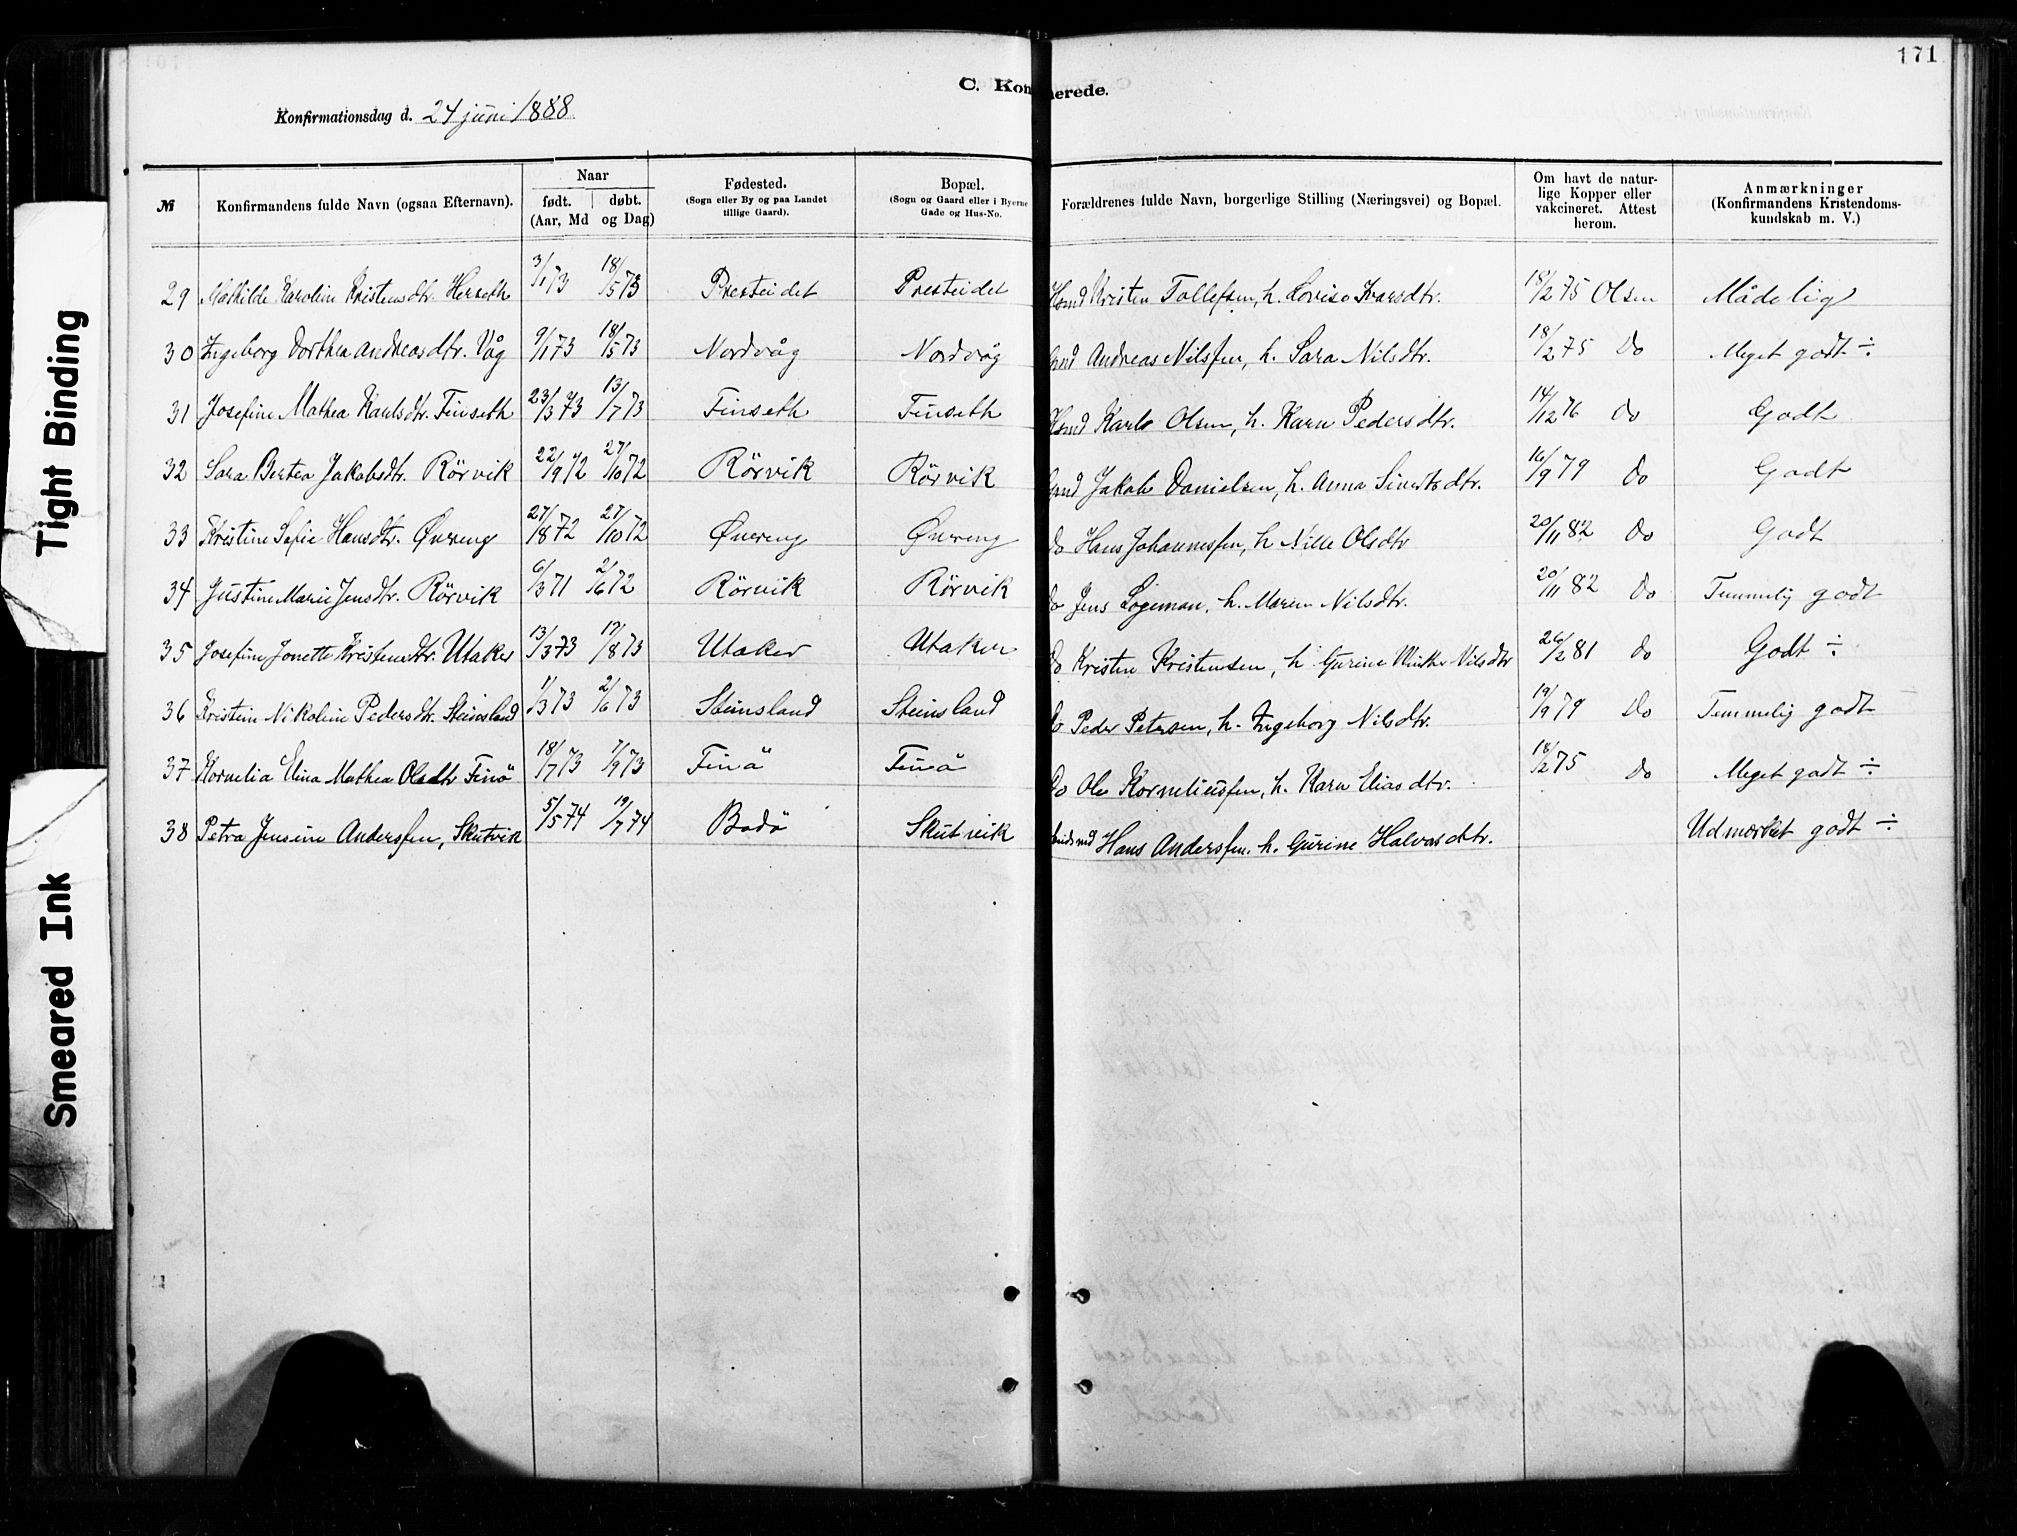 171
C. Kon
erede.
Konfirmationsdag d. 24 juni 1888.
№
Konfirmandens fulde Navn (ogsaa Efternavn).
Naar
født. døbt.
(Aar, Md og Dag)
Fødested.
(Sogn eller By og paa Landet
tillige Gaard).
Bopæl.
(Sogn og Gaard eller i Byerne
Gade og Hus-No.
Forældrenes fulde Navn, borgerlige Stilling (Næringsvei) og Bopæl.
Om havt de natur-
lige Kopper eller
vakcineret. Attest
herom.
Anmærkninger
(Konfirmandens Kristendoms-
kundskab m. V.)
29 Mathilde Karoline Kristensdtr. Herseth 3/1 73 18/5 73 Presteidet Presteidet Kristen Tollefsen, h. Lovise Ivarsdtr. 18/2 75 Olsen Mådelig
30 Ingeborg Dorthea Andreasdtr. Våg 9/1 73 18/5 73 Nordvåg Nordvåg Andreas Nilsfen, h. Sara Nilsdtr. 18/2 75 Do Meget godt ÷
31 Josefine Mathea Karlsdtr. Finseth 23/3 73 13/7 73 Finseth Finseth Karl Olsen, h. Karn Pedersdtr. 14/12 76 Do Godt
32 Sara Bertea Jakobsdtr. Rörvik 22/9 72 27/10 72 Rörvik Rörvik Jakob Danielsen, h. Anna Sivertsdtr. 16/9 79 Do Godt
33 Kristine Sofie Hansdtr. Øvereng 27/8 72 27/10 72 Øvereng Øvereng Do Hans Johannesfen, h Nille Olsdtr 20/11 82 Do Godt
34 Justine Marie Jensdtr. Rörvik 6/3 71 2/6 72 Rörvik Rörvik Do Jens Logeman, h. Maren Nilsdtr. 20/11 82 Do Temmelig godt
35 Josefine Jonette Kristensdtr. Utaker 13/3 73 17/8 73 Utaker Utaker Do Kristen Kristensen, h. Gurine Nilsdtr 26/2 81 Do Godt ÷
36 Kristin Nikoline Pedersdtr. Steinsland 1/3 73 2/6 73 Steinsland Steinsland Do Peder Petersen, h. Ingeborg Nilsdtr. 19/9 79 Do Temmelig godt
37 Kornelia Elina Mathea Olsdtr Finö 18/7 73 7/9 73 Finö Finö Do Ole Korneliusfen, h. Karn Eliasdtr. 18/2 75 Do Meget godt ÷
38 Petra Jensine Andersfen, Skutvik 5/5 74 19/7 74 Bodö Skutvik Hans Andersfen. h. Gurine Halvorsdtr. Udmærket godt ÷
Tight Binding
Smeared Ink